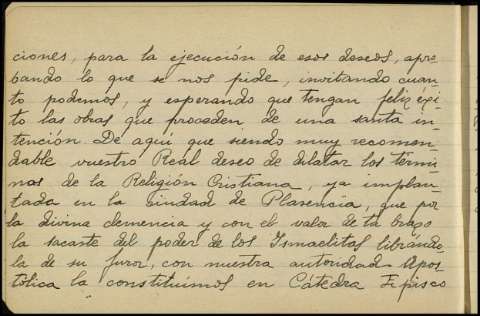 ciones, para la ejecución de esos deseos, apro-
bando lo que se nos pide, invitando cuan-
to podemos, y esperando que tengan feliz éxi-
to las obras que proceden de una santa in-
tención. De aquí que siendo muy recomen-
dable vuestro Real deseo de dilatar los térmi-
nos de la Religión Cristiana, ya implan-
tada en la ciudad de Plasencia, que por
la divina clemencia y con el valor de tu brazo
la sacaste del poder de los Ismaelitas librándo-
la de su furor, con nuestra autoridad Apos-
tólica la constituimos en Cátedra Episco